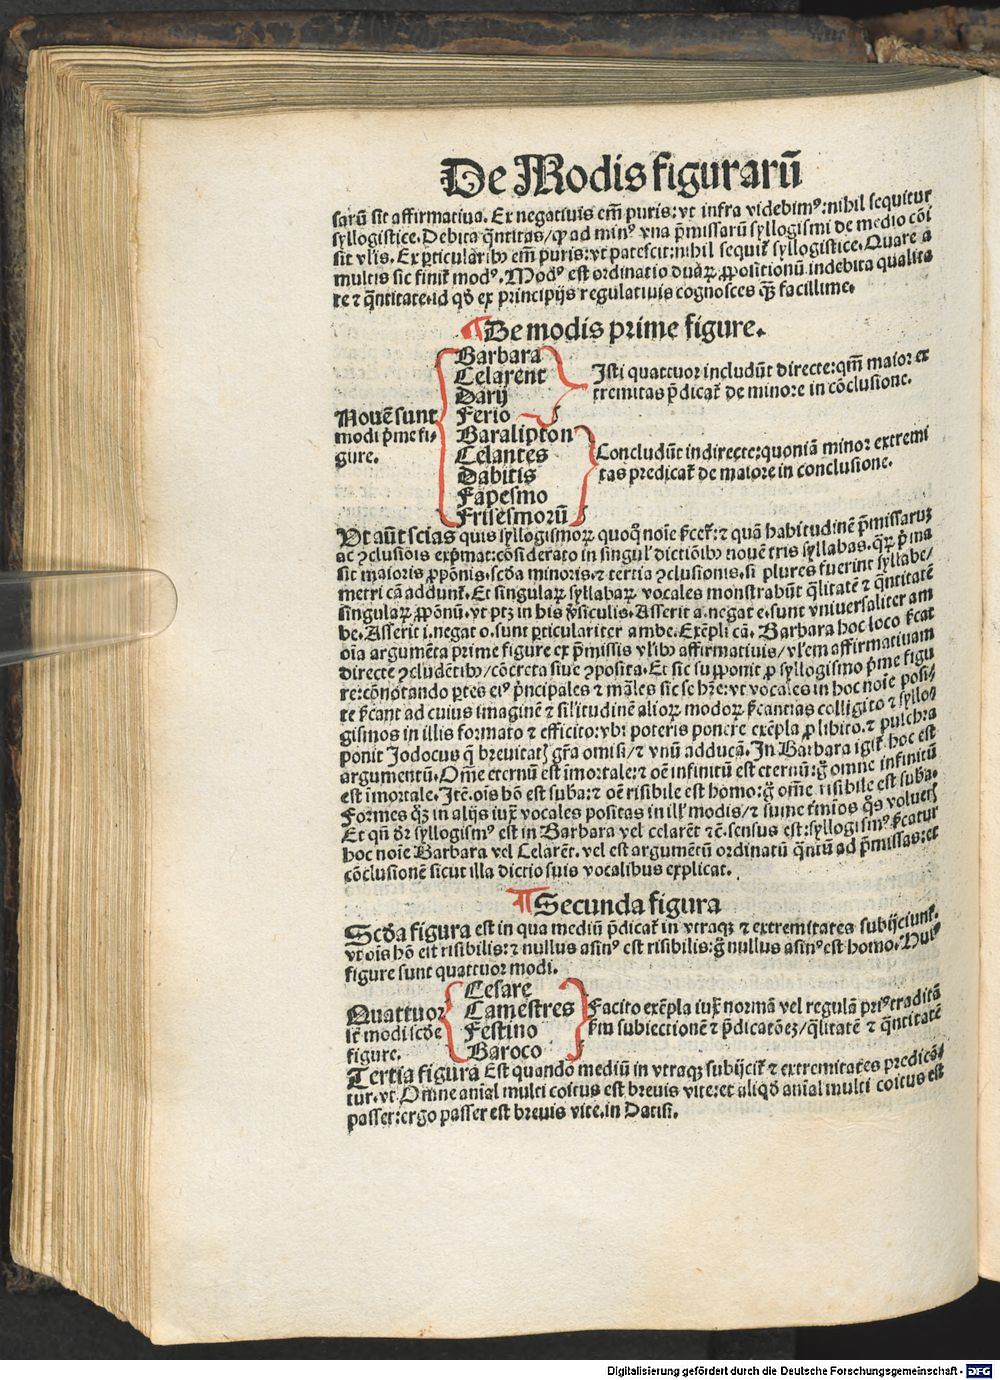 De Modis figurarū
sarū sit affirmatiua. Ex negatiuis em̄ puris: vt infra videbimꝰ: nihil sequitur
syllogistice. Debita q̄ntitas / ꝙ ad minꝰ vna p̄missarū syllogismi de medio cōi
sit vl̓is. Ex ꝑticularibꝫ em̄ puris: vt patescit: nihil sequit᷑ syllogistice. Quare a
multis sic finit᷑ modꝰ. Modꝰ est ordinatio duaꝝ ꝓpositionū indebita qualita
te ⁊ q̄ntitate. id qd̓ ex principijs regulatiuis cognosces qꝫ̄ facillime.
¶ De modis prime figure.
Nouē sunt
modi p̓me fi-
gure.
Barbara
Celarent
Darij
Ferio
Baralipton
Celantes
Dabitis
Fapesmo
Frisesmorū
Isti quattuor includūt directe: qm̄ maior ex
tremitas p̄dicat᷑ de minore in cōclusione.
Concludūt indirecte: quoniā minor extremi
tas predicat᷑ de maiore in conclusione.
Vt aūt scias quis syllogismoꝝ quoqꝫ noīe p̄cet᷑: ⁊ quā habitudinē p̄missaruꝫ
ac ꝯclusiōis exp̓mat: cōsiderato in singul̓ dictiōibꝫ nouē tris syllabas. qꝝ p̓ma
sit maioris ꝓpōnis. scd̓a minoris. ⁊ tertia ꝯclusionis. si plures fuerint syllabe /
metri cā addunt᷑. Et singulaꝝ syllabaꝝ vocales monstrabūt q̄litatē ⁊ q̄ntitatē
singulaꝝ ꝓpōnū. vt ptꝫ in his v̓siculis. Asserit a. negat e. sunt vniuersaliter am
be. Asserit i. negat o. sunt ꝑticulariter ambe. Exēpli cā. Barbara hoc loco p̄cat
oīa argumēta prime figure ex p̄missis vl̓ibꝫ affirmatiuis / vl̓em affirmatiuam
directe ꝯcludētibꝫ / cōcreta siue ꝯposita. Et sic supponit ꝓ syllogismo p̓me figu
re: cōnotando ꝑtes eiꝰ p̓ncipales ⁊ māles sic se hr̄e: vt vocales in hoc noīe posi-
te p̄cant ad cuius imaginē ⁊ sil̓itudinē alioꝝ modoꝝ p̄cantias colligito ⁊ syllo-
gismos in illis formato ⁊ efficito: vbi poteris ponere exēpla ꝓ libito. ⁊ pulchra
ponit Jodocus q̄ breuitatꝭ gr̄a omisi / ⁊ vnū adducā. In Barbara igit᷑ hoc est
argumentū. Om̄e eternū est īmortale: ⁊ oē infinitū est eternū: g̊ omne infinitū
est īmortale. Itē. oīs hō est suba: ⁊ oē risibile est homo: g̊ om̄e risibile est suba.
Formes qꝫ in alijs iuxͭ vocales positas in ill̓ modis / ⁊ sume t̓minos q̊s voluerꝭ
Et qn̄ dr̄ syllogismꝰ est in Barbara vel celarēt ⁊c̄. sensus est: syllogismꝰ p̄catur
hoc noīe Barbara vel Celarēt. vel est argumētū ordinatū q̄ntū ad p̄missas: et
cōclusionē sicut illa dictio suis vocalibus explicat.
¶ Secunda figura
Scd̓a figura est in qua mediū p̄dicat᷑ in vtraqꝫ ⁊ extremitates subijciunt᷑.
vt oīs hō est risibilis: ⁊ nullus asinꝰ est risibilis: g̊ nullus asinꝰ est homo. Huiꝰ
figure sunt quattuor modi.
Quattuor
st̄ modi scd̓e
figure.
Cesare
Camestres
Festino
Baroco
Facito exēpla iuxͭ normā vel regulā priꝰ traditā
p̄m subiectionē ⁊ p̄dicatōeꝫ / q̄litatē ⁊ q̄ntitatē
Tertia figura Est quando mediū in vtraqꝫ subijcit᷑ ⁊ extremitates predicā-
tur. vt Omne aīal multi coitus est breuis vite: et aliqd̓ anīal multi coitus est
passer: ergo passer est breuis vite. in Datisi.
Digitalisierung gefördert durch die Deutsche Forschungsgemeinschaft - DFG